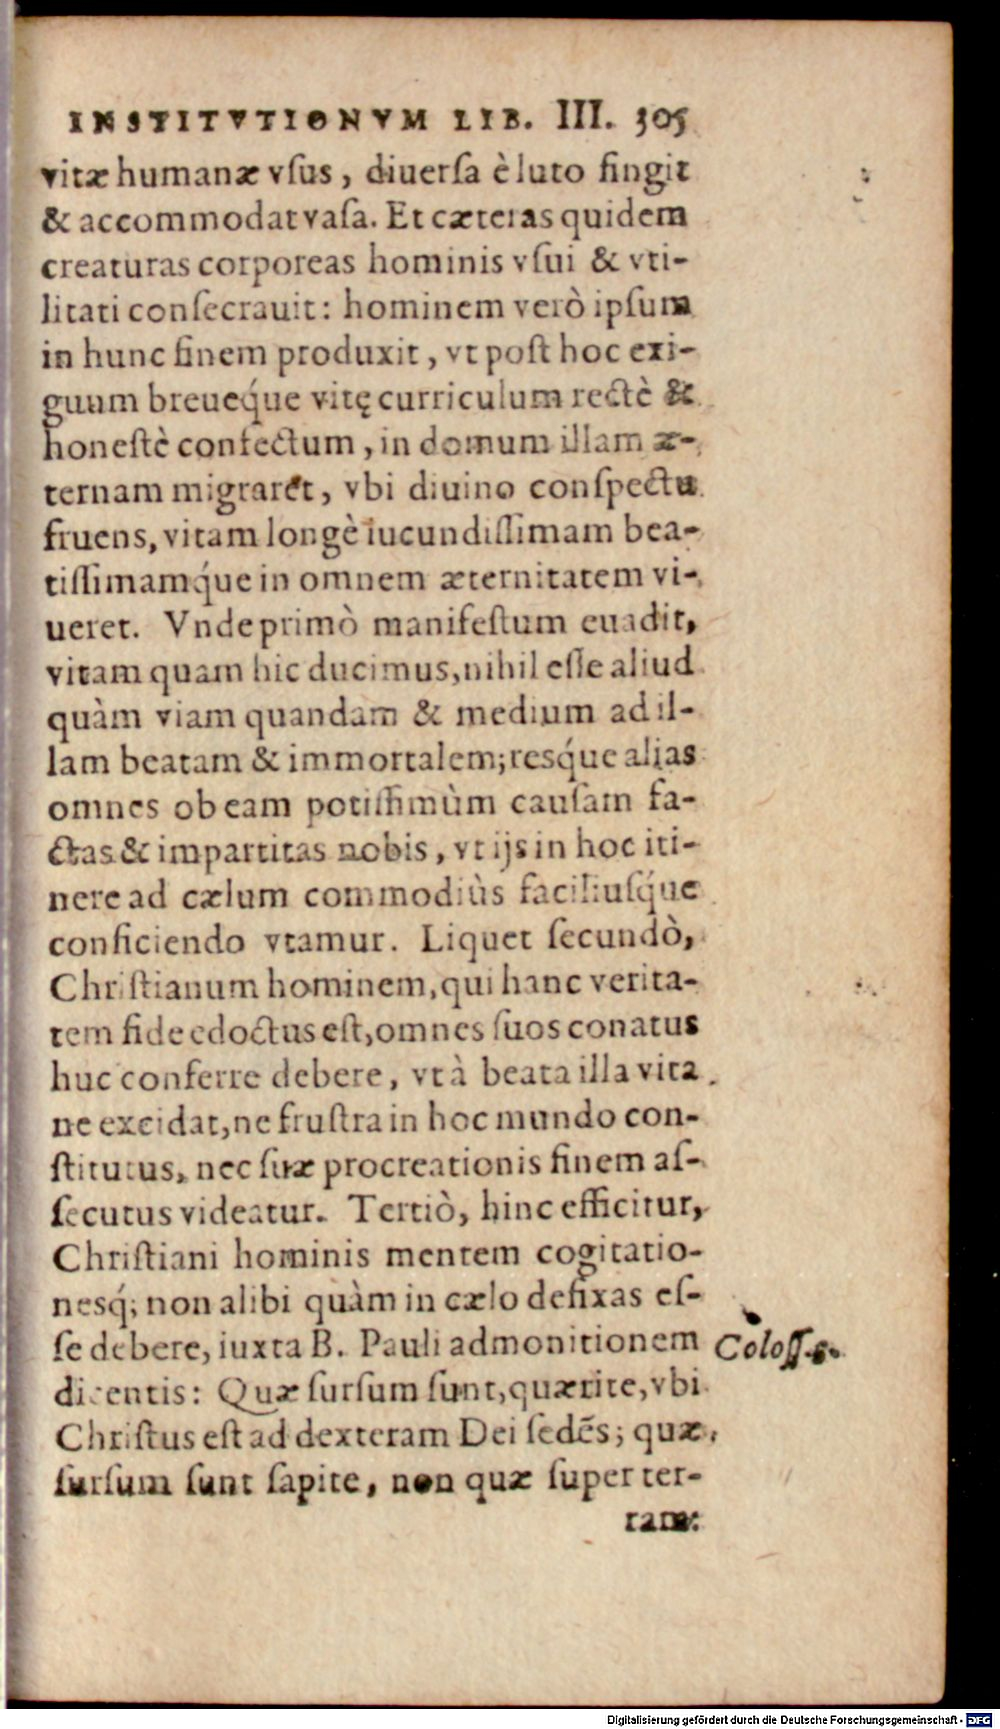 INSTITVTIONVM LIB. III. 305
vitæ humanæ vſus, diuerſa è luto fingit
& accommodat vaſa. Et cæteras quidem
creaturas corporeas hominis vſui & vti-
litati conſecrauit: hominem verò ipſum
in hunc finem produxit, vt poſt hoc exi-
guum breueq́ue vitę curriculum rectè &
honeſtè confectum, in domum illam æ-
ternam migraret, vbi diuino conſpectu
fruens, vitam longè iucundiſſimam bea-
tiſſimamq́ue in omnem æternitatem vi-
ueret. Vnde primò manifeſtum euadit,
vitam quam hic ducimus, nihil eſſe aliud
quàm viam quandam & medium ad il-
lam beatam & immortalem; resq́ue alias
omnes ob eam potiſſimùm cauſam fa-
ctas & impartitas nobis, vt ijs in hoc iti-
nere ad cælum commodiùs faciliuſq́ue
conficiendo vtamur. Liquet ſecundò,
Chriſtianum hominem, qui hanc verita-
tem fide edoctus eſt, omnes ſuos conatus
huc conferre debere, vt à beata illa vita
ne excidat, ne fruſtra in hoc mundo con-
ſtitutus, nec ſuæ procreationis finem aſ-
ſecutus videatur. Tertiò, hinc efficitur,
Chriſtiani hominis mentem cogitatio-
nesq́; non alibi quàm in cælo defixas eſ-
ſe debere, iuxta B. Pauli admonitionem
Coloſſ.
dicentis: Quæ ſurſum ſunt, quærite, vbi
Chriſtus eſt ad dexteram Dei ſedēs; quæ
ſurſum ſunt ſapite, non quæ ſuper ter-
ram:
Digitalisierung gefördert durch die Deutsche Forschungsgemeinschaft - DFG